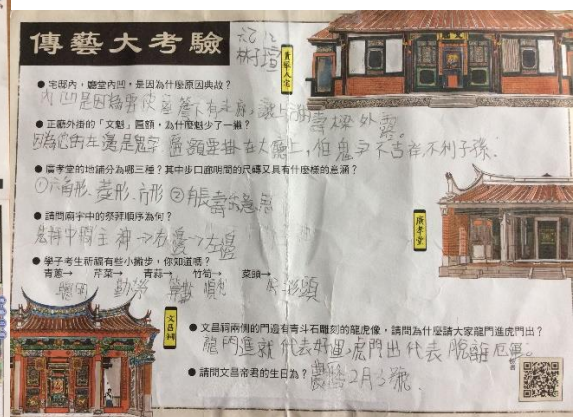 傳藝大考驗
六乙
林于瑄
黃舉人宅
● 宅邸內，廳堂內凹，是因為什麼原因典故？
內凹是因為要使
● 正廳外掛的「文魁」匾額，為什麼魁少了一撇？
因為他的左邊是鬼字 匾額要掛在大廳上，但鬼字不吉祥不利子孫.
● 廣孝堂的地鋪分為哪三種？其中步口廊明間的尺磚又具有什麼樣的意涵？
①六角形、菱形、方形 ②
● 請問廟宇中的祭拜順序為何？
中間主神→右邊→左邊
廣孝堂
● 學子考生祈福有些小撇步，你知道嗎？
青蔥→ 芹菜→ 青蒜→ 竹筍→ 菜頭→
聰明 勤勞 順利 好彩頭
文昌祠
● 文昌祠兩側的門邊有青斗石雕刻的龍虎像，請問為什麼請大家龍門進虎門出？
龍門進就代表好運，虎門出代表脫離厄運.
● 請問文昌帝君的生日為？農曆2月3號.